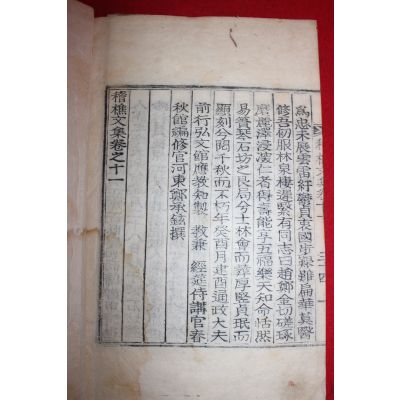 爲忠未展雲雷紆籌員衷國事嗥雖扁華莫醫
修吾初服林泉棲遲緊有同志曰趙鄭金切磋琢
磨麗澤浸漬仁者得壽能享五福樂天知命恬然
易簀琴石坊之艮局兮士林會而葬厚竪貞珉而
顯刻兮閱千秋而不朽年癸酉月建酉通政大夫
前行弘文館應教知製 教兼 經筵侍講官春
秋館編修官河東鄭承鉉撰
稽樵文集卷之十一